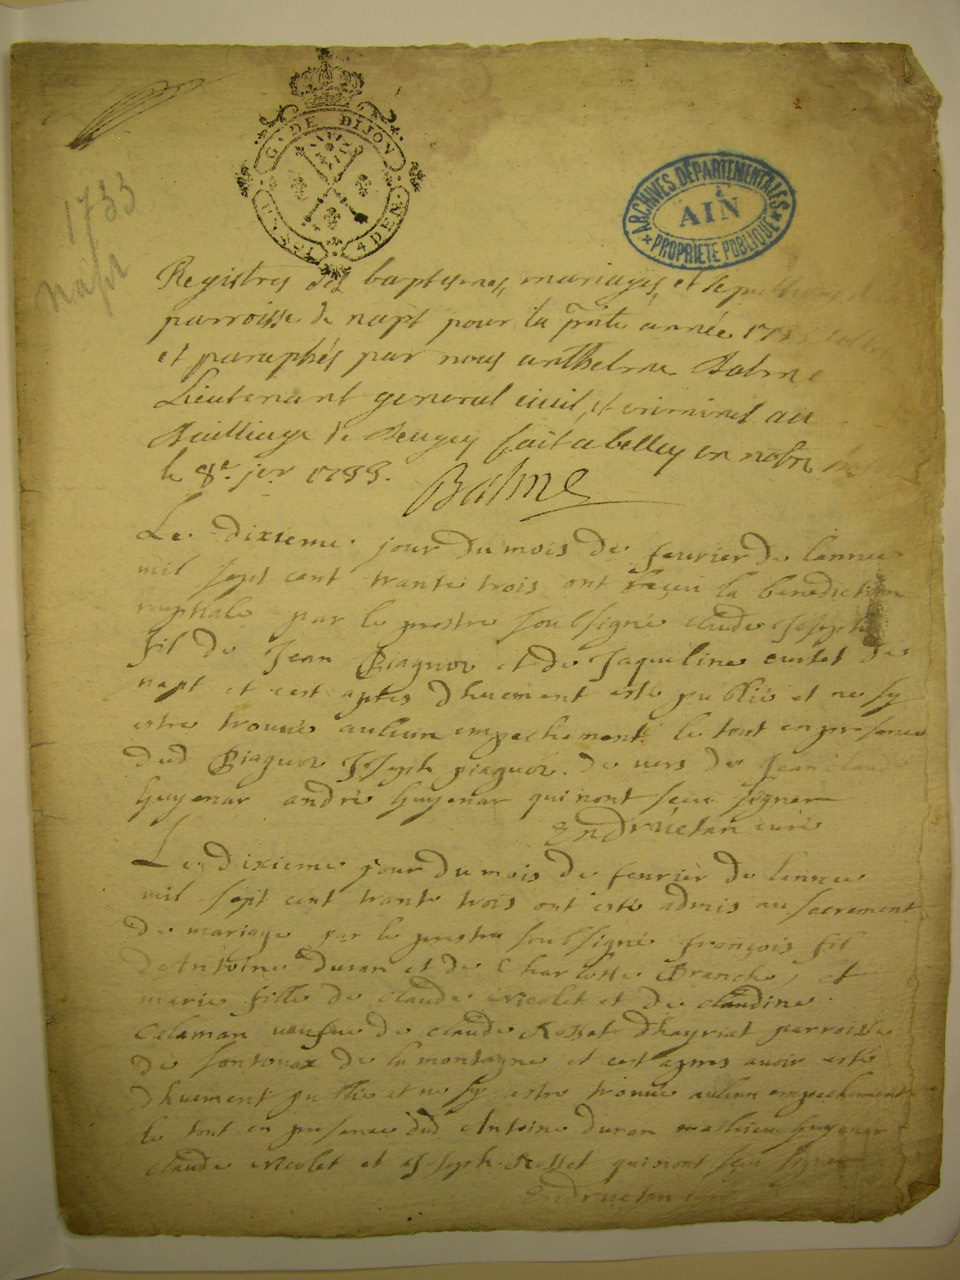 G. DE DIJON
4 DEN.
ARCHIVES DÉPARTEMENTALES
AIN
PROPRIETE PUBLIQUE
1733
napt
Registres des baptesmes, mariages, et sepultures
parroisse de napt pour la pnte année 17
et paraphés par nous anthelme Balme
Lieutenant general civil, et criminel au
Bailliage de Beugey fait a belley en nostre
le 8e. jer 1733. Balme
Le dixieme jour du mois de feurier de lannee
mil sept cent trante trois ont receu la benediction
nuptiale par le prestre soubsigné claude Joseph
fil de Jean Piaguor et de Jaqueline curtet de
napt et cest apres dhuement esté publié et ne sy
estre trouué auleun empechement le tout en presence
dud Piaguor Joseph piaguor de vers de Jean claude
Guyenar andré Guyenar qui nont sceu signer
Endruetan curé
Le dixieme jour du mois de feurier de lannee
mil sept cent trante trois ont esté admis au sacrement
de mariage par le prestre soubsigné françois fil
de Antoine duran et de Charlotte Branche, et
marie fille de claude Nicolet et de claudine
Calaman ueufue de claude Rosset dhayriat parroisse
de sontonax de la montagne et cest apres auoir esté
dhuement publié et ne sy estre trouué auleun empechement
le tout en presence dud Antoine duran mathieu Guyenar
claude Nicolet et Joseph Rosset qui nont sceu signer
Endruetan